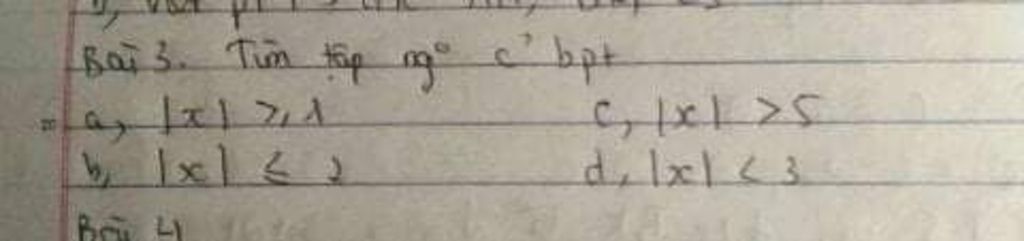 Bài 3. Tìm tập ng° c² bpt
a, |x| ≥ 1 c, |x| > 5
b, |x| ≤ 2 d, |x| < 3
Bài 4